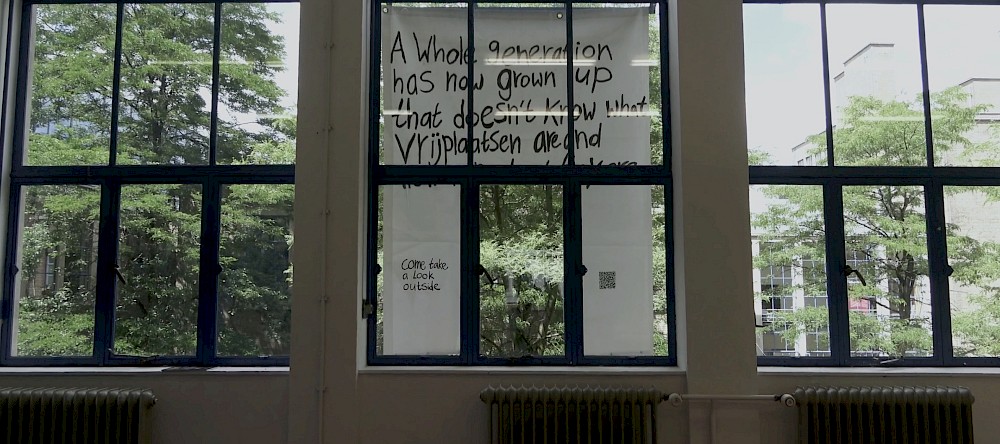 A Whole generation
has now grown up
that doesn't know what
Vrijplaatsen are and
come take
a look
outside